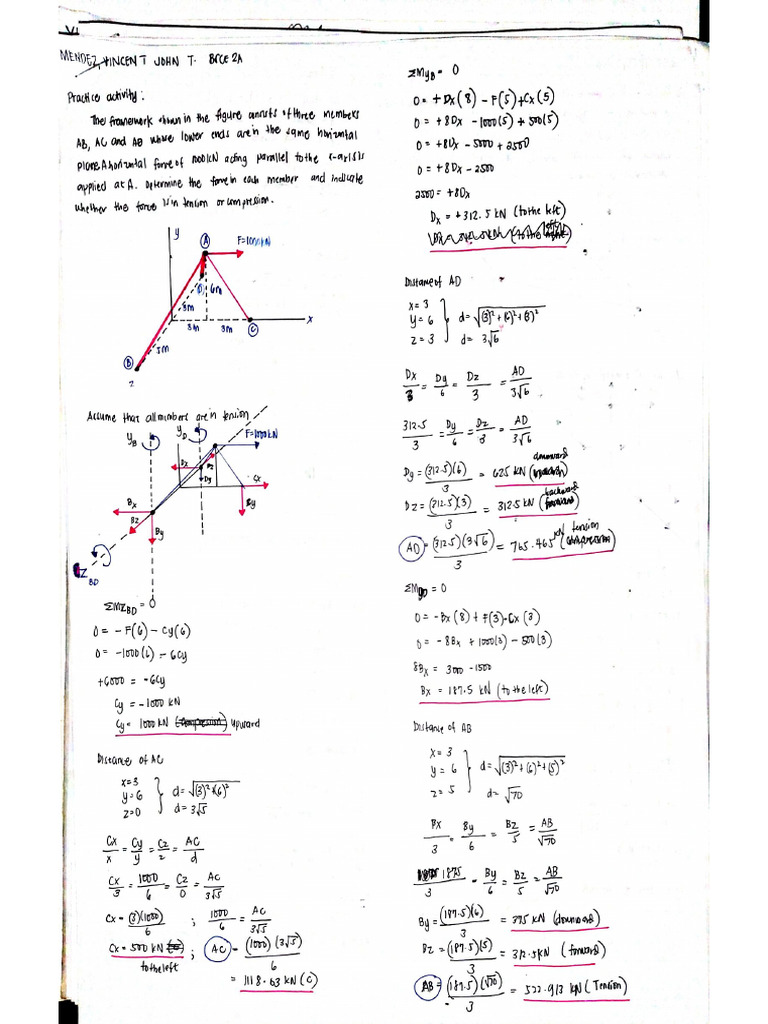 MENDEZ, VINCENT JOHN T. BSCE 2A
Practice activity:
The framework shown in the figure consists of three members
AB, AC and AB whose lower ends are in the same horizontal
plane. A horizontal force of 1000 kN acting parallel to the x-axis is
applied at A. Determine the force in each member and indicate
whether the force is in tension or compression.
y
A
F=1000kN
D
6m
3m
3m
3m
C
x
5m
B
z
Assume that all members are in tension
yB
yD
F=1000 kN
Dx
Dz
Dy
Cx
Cy
Bx
Bz
By
ZBD
ΣMZBD = 0
0 = -F(6) - Cy(6)
0 = -1000(6) - 6Cy
+6000 = -6Cy
Cy = -1000 KN
Cy = 1000 KN upward
Distance of AC
x=3
y=6
z=0
d=√(3)²+(6)²
d= 3√5
Cx/x = Cy/y = Cz/z = AC/d
Cx/3 = 1000/6 = Cz/0 = AC/3√5
Cx = (3)(1000)/6 ; 1000/6 = AC/3√5
Cx = 500 KN to the left ; AC = (1000)(3√5)/6
= 1118.03 KN (C)
ΣMyB = 0
0 = +Dx(8) - F(5) + Cx(5)
0 = +8Dx - 1000(5) + 500(5)
0 = +8Dx - 5000 + 2500
0 = +8Dx - 2500
2500 = +8Dx
Dx = +312.5 KN (to the left)
Distance of AD
x=3
y=6
z=3
d=√(3)²+(6)²+(3)²
d= 3√6
Dx/3 = Dy/6 = Dz/3 = AD/3√6
312.5/3 = Dy/6 = Dz/3 = AD/3√6
Dy = (312.5)(6)/3 = 625 KN (downward)
Dz = (312.5)(3)/3 = 312.5 KN (backward)
AD = (312.5)(3√6)/3 = 765.465 KN (tension)
ΣMyD = 0
0 = -Bx(8) + F(3) - Cx(3)
0 = -8Bx + 1000(3) - 500(3)
8Bx = 3000 - 1500
Bx = 187.5 KN (to the left)
Distance of AB
x=3
y=6
z=5
d=√(3)²+(6)²+(5)²
d= √70
Bx/3 = By/6 = Bz/5 = AB/√70
187.5/3 = By/6 = Bz/5 = AB/√70
By = (187.5)(6)/3 = 375 KN (downward)
Bz = (187.5)(5)/3 = 312.5 KN (forward)
AB = (187.5)(√70)/3 = 522.913 KN (Tension)